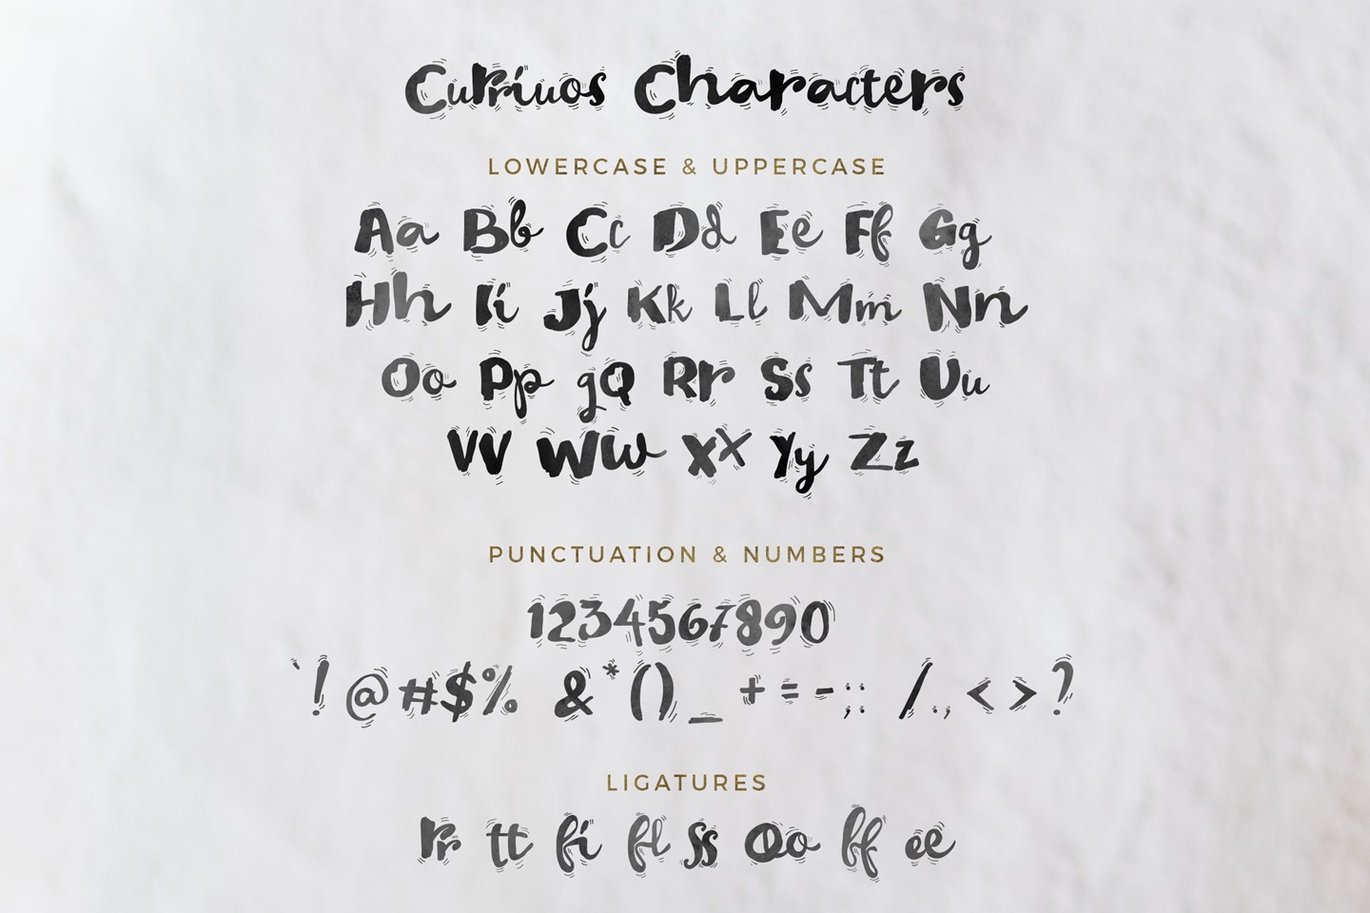 Curriuos Characters
LOWERCASE & UPPERCASE
Aa Bb Cc Dd Ee Ff Gg
Hh Ii Jj Kk Ll Mm Nn
Oo Pp qQ Rr Ss Tt Uu
Vv Ww Xx Yy Zz
PUNCTUATION & NUMBERS
1234567890
`!@#$% &*()_+=-;: /.,<>?
LIGATURES
rr tt fi fl ss oo ff ee